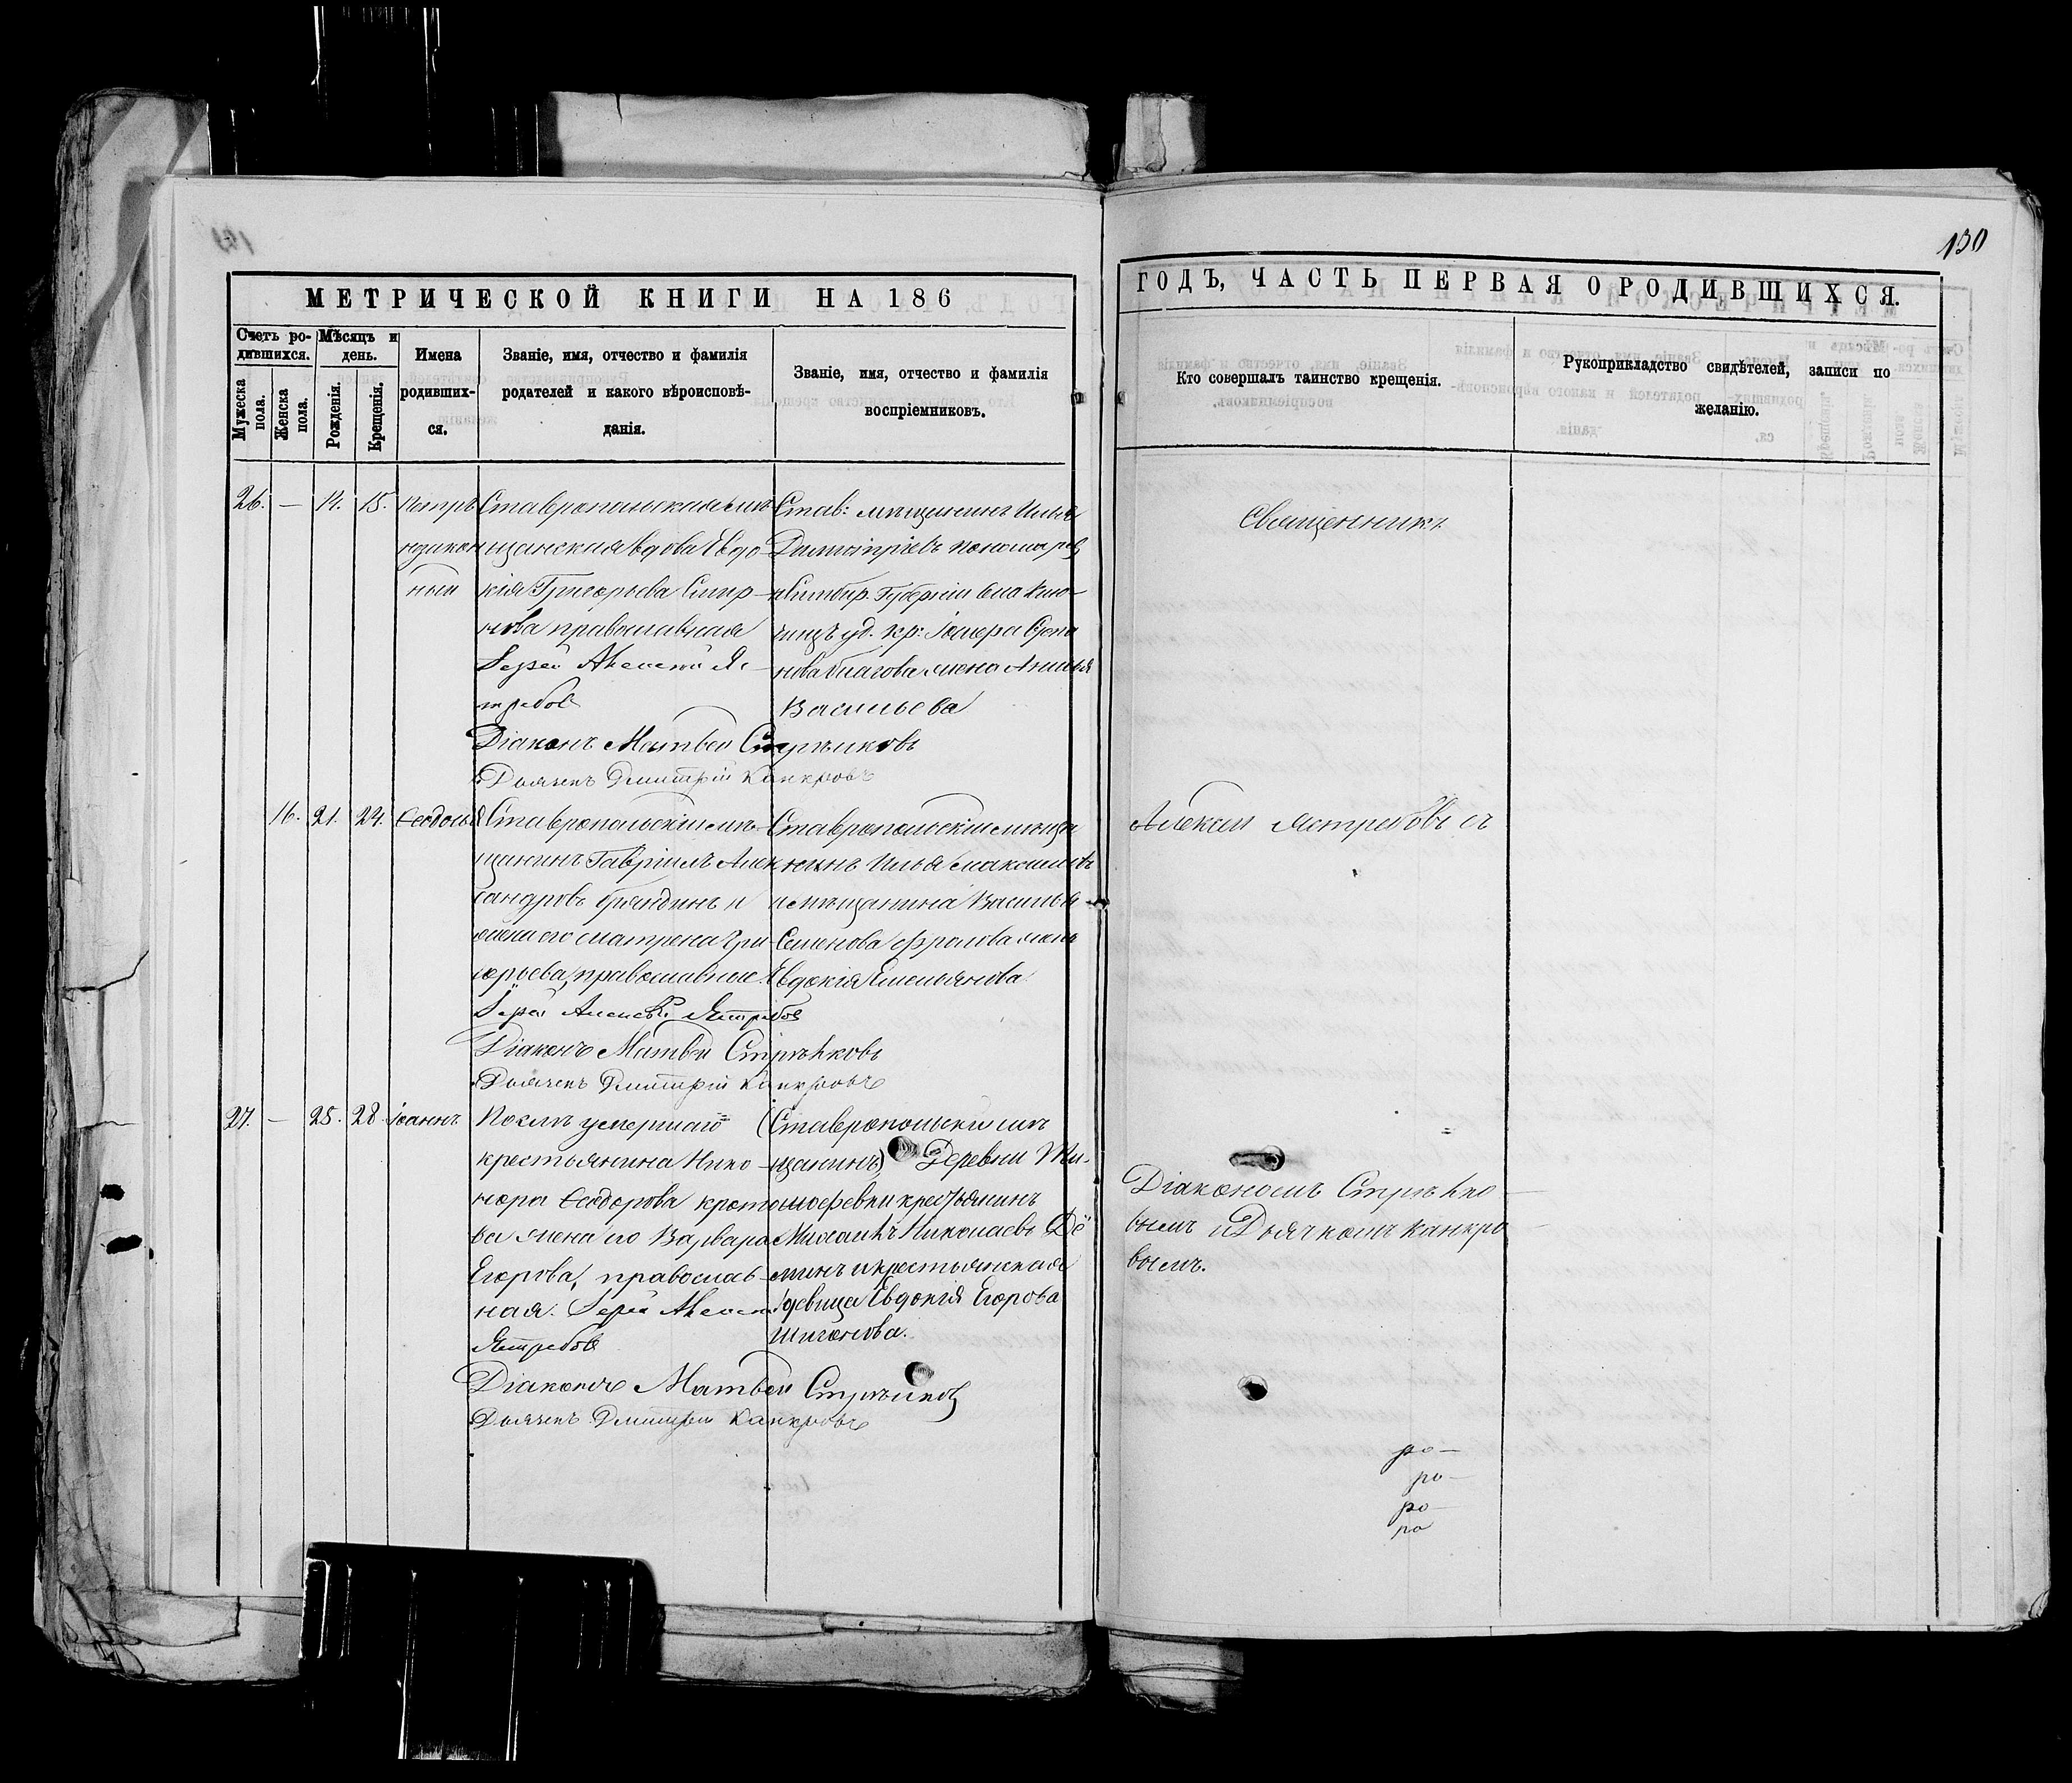 130
МЕТРИЧЕСКОЙ КНИГИ НА 186
ГОДЪ, ЧАСТЬ ПЕРВАЯ О РОДИВШИХСЯ.
Счетъ ро-
дившихся.
Мужеска пола.
Женска пола.
Мѣсяцъ и
день.
Рожденія.
Крещенія.
Имена
родивших-
ся.
Званіе, имя, отчество и фамилія
родителей и какого вѣроисповѣ-
данія.
Званіе, имя, отчество и фамилія
воспріемниковъ.
Кто совершалъ таинство крещенія.
Рукоприкладство свидѣтелей, записи по
желанію.
26. — 14. 15. Петръ
незакон
ный
Ставропольская мѣ
щанская вдова Евдо
кія Григорьева Смир-
нова православная
Іерей Алексей Яс-
требовъ
Діаконъ Матвей Стрѣлковъ
Дьячекъ Дмитрій Канкровъ
Став: мѣщанинъ Илья
Димитріевъ Пономарев
и Симбир. Губерніи села
уд. кр:
жена
Васильева
Священникъ
16. 21. 24. Ѳеодосія
Ставропольскій мѣ-
щанинъ Гавріилъ Алек
сандровъ и
жена его Матрена Гри
горьева, православные.
Іерей Алексѣй Ястребовъ
Діаконъ Матвей Стрѣлковъ
Дьячекъ Дмитрій Канкровъ
Ставропольскій мѣща
нинъ Илья
и мѣщанина Василья
Семенова Фролова жена
Евдокія Емельянова
Алексѣй Ястребовъ съ
27. — 25. 28. Іоаннъ
Послѣ умершаго
крестьянина Нико-
нора Ѳеодорова
ва жена его Варвара
Егорова, православ-
ная. Іерей Алексей
Ястребовъ
Діаконъ Матвей Стрѣлковъ
Дьячекъ Дмитрій Канкровъ
(Ставропольскій мѣ
щанинъ) Деревни Ти-
мофеевки крестьянинъ
Михаилъ Николаевъ Дё
минъ и крестьянская
девица Евдокія Егорова
Шигонова.
Діакономъ Стрѣлко-
вымъ и Дьячкомъ Канкро
вымъ.
ро-
ро-
ро-
ро